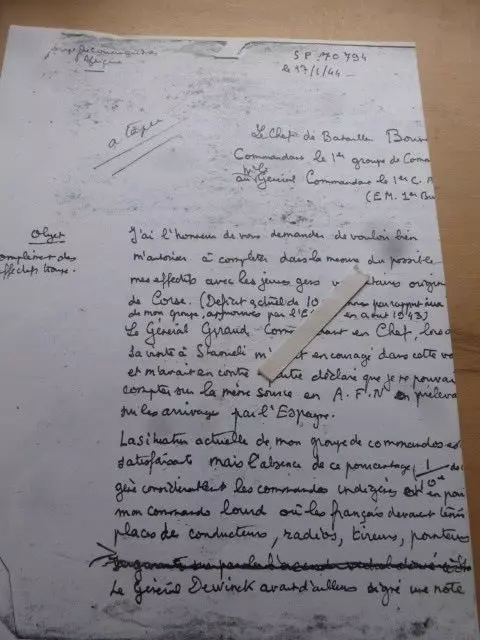 Groupe de Commandos
Afrique
SP. 70 794
le 17/1/44 -
a taper
Le Chef de Bataillon Bouv
Commandant le 1er groupe de Coma
au Général Commandant le 1er C.
(E.M. 1er Bu
Objet
omplément des
ffectifs troupe.
J'ai l'honneur de vous demander de vouloir bien
m'autoriser à compléter dans la mesure du possible
mes effectifs avec les jeunes gens origin
de Corse. (Deficit actuel de 10 par rapport aux
de mon groupe, approuvés par l'E en aout 1943)
Le Général Giraud Com dant en Chef, lors
sa visite à Staoueli m' t encouragé dans cette vo
et m'avait en contre déclaré que je ne pouvai
compter sur la même source en A.F.N en préleva
sur les arrivages par l'Espagne.
La situation actuelle de mon groupe de commandos es
satisfaisante mais l'absence de ce pourcentage, 1
gène considérablement les commandos indigènes et en par
mon commando lourd où les français devaient tenir
places de conducteurs, radios, tireurs, pointeurs
Le Général Dewinck avait d'ailleurs signé une note